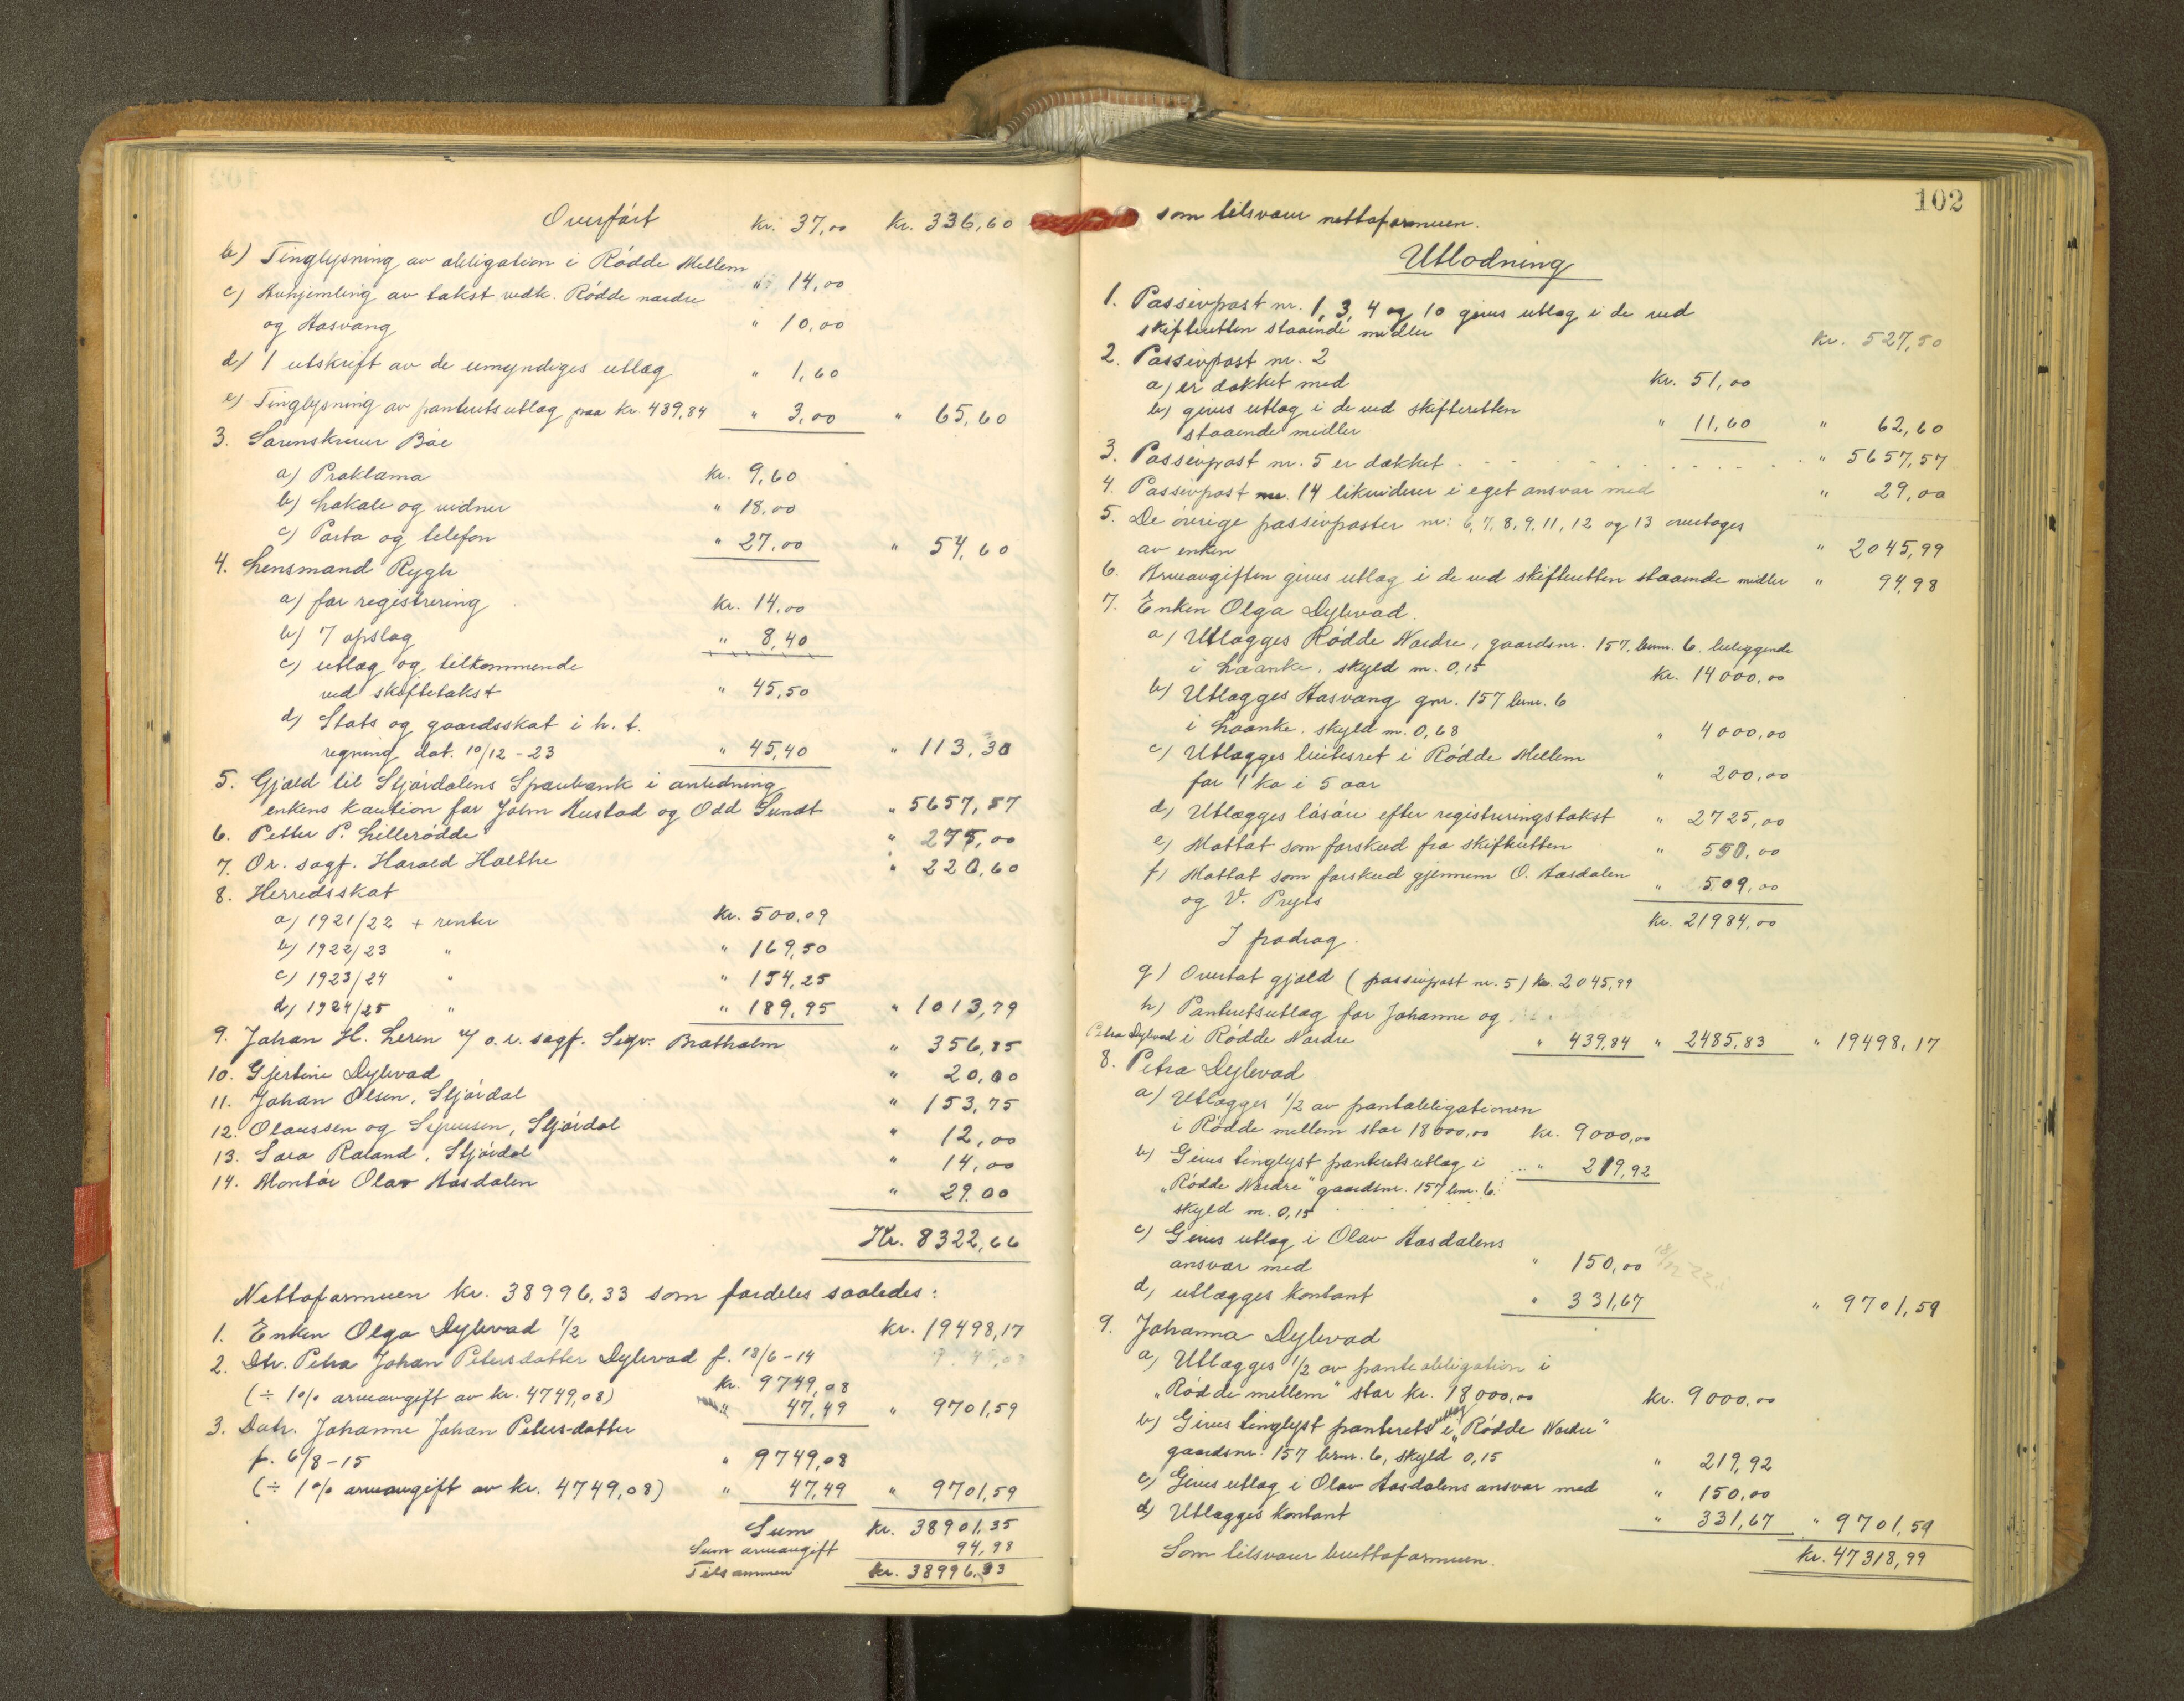 Overført kr. 37,00 kr. 336,60
b) Tinglysning av obligation i Rødde Mellem " 14,00
c) Avhjemling av takst vedk. Rødde nordre
og Aasvang " 10,00
d) 1 utskrift av de umyndiges utlæg " 1,60
e) Tinglysning av panteretsutlæg paa kr. 439,84 " 3,00 " 65,60
3. Sorenskriver Bøe
a) Proklama kr. 9,60
b) Lokale og vidner " 18,00
c) Porto og telefon " 27,00 " 54,60
4. Lensmand Rygh
a) for registrering kr. 14,00
b) 7 opslag " 8,40
c) utlæg og tilkommende
ved skiftetakst " 45,50
d) Stats og gaardsskat i h. t.
regning dat. 10/12 - 23 " 45,40 " 113,30
5. Gjæld til Stjørdalens Sparebank i anledning
enkens kaution for John Hustad og Odd Sundt " 5657,57
6. Petter P. Lillerødde " 275,00
7. Or. sagf. Harald Holthe " 220,60
8. Herredsskat
a) 1921/22 + renter kr. 500,09
b) 1922/23 " " 169,50
c) 1923/24 " " 154,25
d) 1924/25 " " 189,95 " 1013,79
9. Johan H. Leren v/ o.r. sagf. Sigv. Bratholm " 356,85
10. Gjertine Dybvad " 20,00
11. Johan Olsen, Stjørdal " 153,75
12. Olaussen og Syversen, Stjørdal " 12,00
13. Sara Raland, Stjørdal " 14,00
14. Montør Olav Aasdalen " 29.00
Kr. 8322,66
Nettoformuen kr. 38996,33 som fordeles saaledes:
1. Enken Olga Dybvad 1/2 kr. 19498,17
2. Dtr. Petra Johan Petersdatter Dybvad f. 18/6-14
kr. 9749,08
(÷ 1% arveavgift av kr. 4749,08) " 47,49 " 9701,59
3. Datr. Johanne Johan Peters-datter
f. 6/8-15 " 9749,08
(÷ 1% arveavgift av kr. 4749,08) " 47,49 " 9701,59
Sum kr. 38901,35
Sum arveavgift 94,98
Tilsammen kr. 38996.33
102
som tilsvarer nettoformuen.
Utlodning
1. Passivpost nr. 1, 3, 4 og 10 gives utlæg i de ved
skifteretten staaende midler kr. 527,50
2. Passivpost nr. 2
a) er dækket med kr. 51,00
b) gives utlæg i de ved skifteretten
staaende midler " 11,60 " 62,60
3. Passivpost nr. 5 er dækket " 5657,57
4. Passivpost nr. 14 likviderer i eget ansvar med " 29,00
5. De øvrige passivposter nr: 6, 7, 8, 9, 11, 12 og 13 overtages
av enken " 2045,99
6. Arveavgiften gives utlæg i de ved skifteretten staaende midler " 94,98
7. Enken Olga Dybvad.
a) Utlægges Rødde Nordre, gaardsnr. 157, brnr. 6 beliggende
i Laanke, skyld m. 0,15 kr. 14000,00
b) Utlægges Aasvang gnr. 157 brnr. 6
i Laanke, skyld m. 0,68 " 4000,00
c) Utlægges beitesret i Rødde Mellem
for 1 ko i 5 aar " 200,00
d) Utlægges løsøre efter registreringstakst " 2725,00
e) Mottat som forskud fra skifteretten " 550,00
f) Mottat som forskud gjennem O. Aasdalen
og V. Prytz " 509,00
kr. 21984,00
I fradrag.
g) Overtat gjæld (passivpost nr. 5) kr. 2045,99
h) Panteretsutlæg for Johanne og
Petra Dybvad i Rødde Nordre " 439,84 " 2485,83 " 19498,17
8. Petra Dybvad.
a) Utlægges 1/2 av pantobligationen
i Rødde mellem stor 18000,00 kr. 9000,00
b) Gives tinglyst panteretsutlæg i " 219,92
"Rødde Nordre" gaardsnr. 157 brnr. 6
skyld m. 0,15
c) Gives utlæg i Olav Aasdalens
ansvar med " 150,00
d) utlægges kontant " 331,67 " 9701,59
9. Johanna Dybvad
a) Utlægges 1/2 av panteobligation i
"Rødde mellem" stor kr. 18000,00 kr. 9000,00
b) Gives tinglyst panterets utlæg i "Rødde Nordre"
gaardsnr. 157 brnr. 6, skyld 0,15 " 219,92
c) Gives utlæg i Olav Aasdalens ansvar med " 150,00
d) Utlægges kontant " 331,67 " 9701,59
Som tilsvarer bruttoformuen. kr. 47318,99